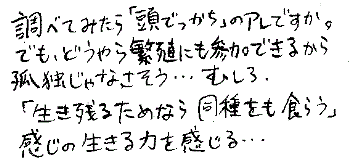 調べてみたら「頭でっかち」のアレですか。
でも、どうやら繁殖にも参加できるから
孤独じゃなさそう…むしろ、
「生き残るためなら同種をも食らう」
感じの生きる力を感じる…